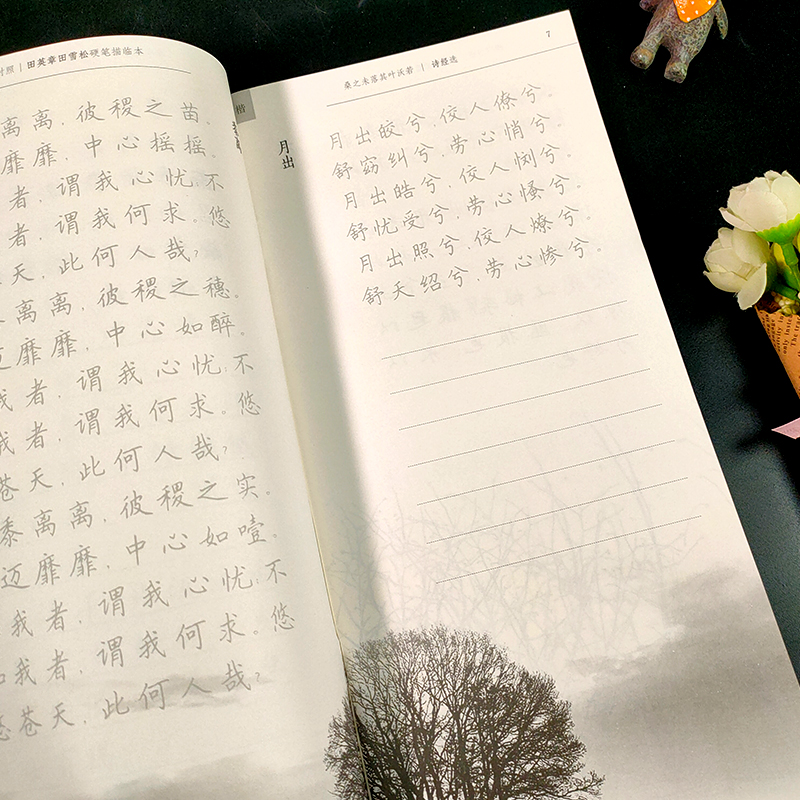 对照 | 田英章田雪松硬笔描临本
离离,彼稷之苗。
靡靡,中心摇摇。
者,谓我心忧;不
者,谓我何求。悠
天,此何人哉?
离离,彼稷之穗。
迈靡靡,中心如醉。
我者,谓我心忧;不
我者,谓我何求。悠
苍天,此何人哉?
黍离离,彼稷之实。
迈靡靡,中心如噎。
我者,谓我心忧;不
我者,谓我何求。悠
悠苍天,此何人哉?
7
桑之未落其叶沃若 | 诗经选
楷
月出
月出皎兮,佼人僚兮。
舒窈纠兮,劳心悄兮。
月出皓兮,佼人兮。
舒忧受兮,劳心慅兮。
月出照兮,佼人燎兮。
舒夭绍兮,劳心惨兮。